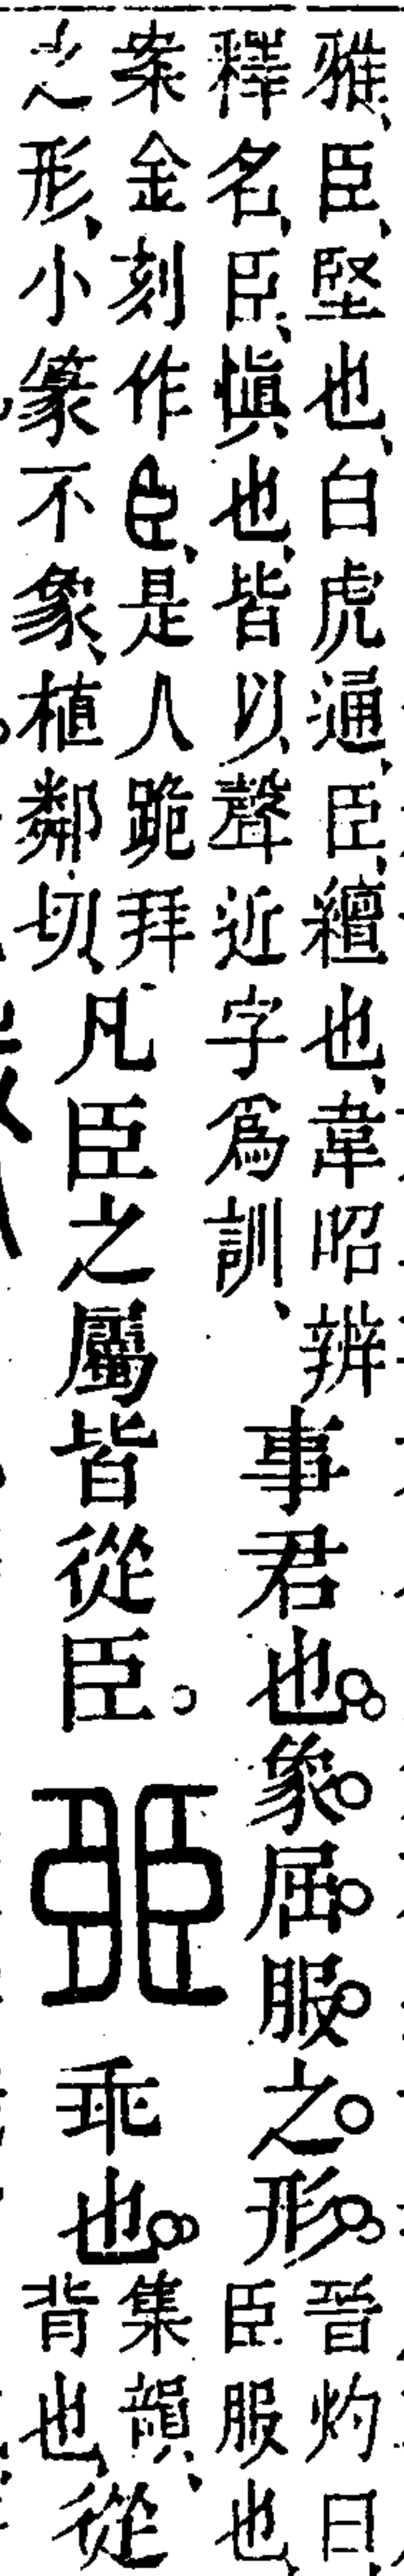 雅、臣、堅也、白虎通、臣、繵也、韋昭辨
釋名、臣、愼也、皆以聲近字爲訓、
事君也。象屈服之形。
晉灼曰、
臣服也、
案金刻作臣、是人跪拜
之形、小篆不象、植鄰切、
凡臣之屬皆從臣。臦乖也。
集韻、
背也、從